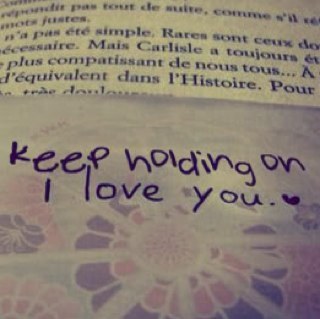 répondit pas tout de suite, comme s'il
mots justes.
n'a pas été simple. Rares sont ceux do
écessaire. Mais Carlisle a toujours é
plus compatissant de nous tous... À
d'équivalent dans l'Histoire. Pour
très
keep holding on
I love you.